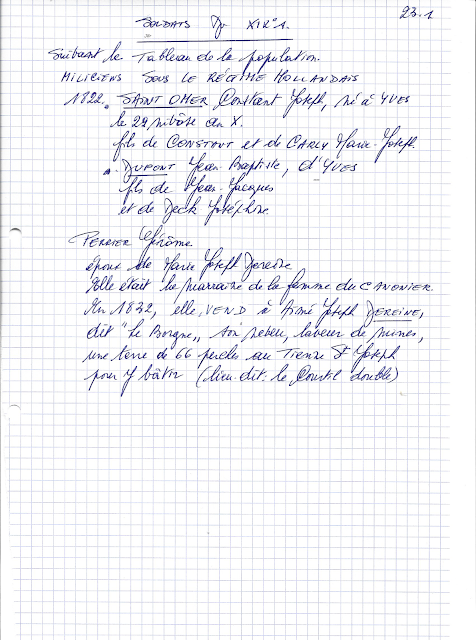 23.1
SOLDATS Du XIXe s.
Suivant le Tableau de la population.
MILICIENS SOUS LE RÉGIME HOLLANDAIS
1822. SAINT OMER Constant Joseph, né à YVES
le 22 nivôse an X.
fils de CONSTANT et de CARLY Marie-Joseph.
. DUPONT Jean-Baptiste, d'YVES
fils de Jean-Jacques
et de Deck Joséphine.
PERRIER Jérôme.
époux de Marie Joseph Dereine
Elle était la marraine de la femme du CANONIER
En 1832, elle VEND à Aimé Joseph DEREINE,
dit "Le Borgne", son neveu, laveur de mines,
une terre de 66 perches au Tienne St Joseph
pour y bâtir (lieu-dit: le Courtil double)